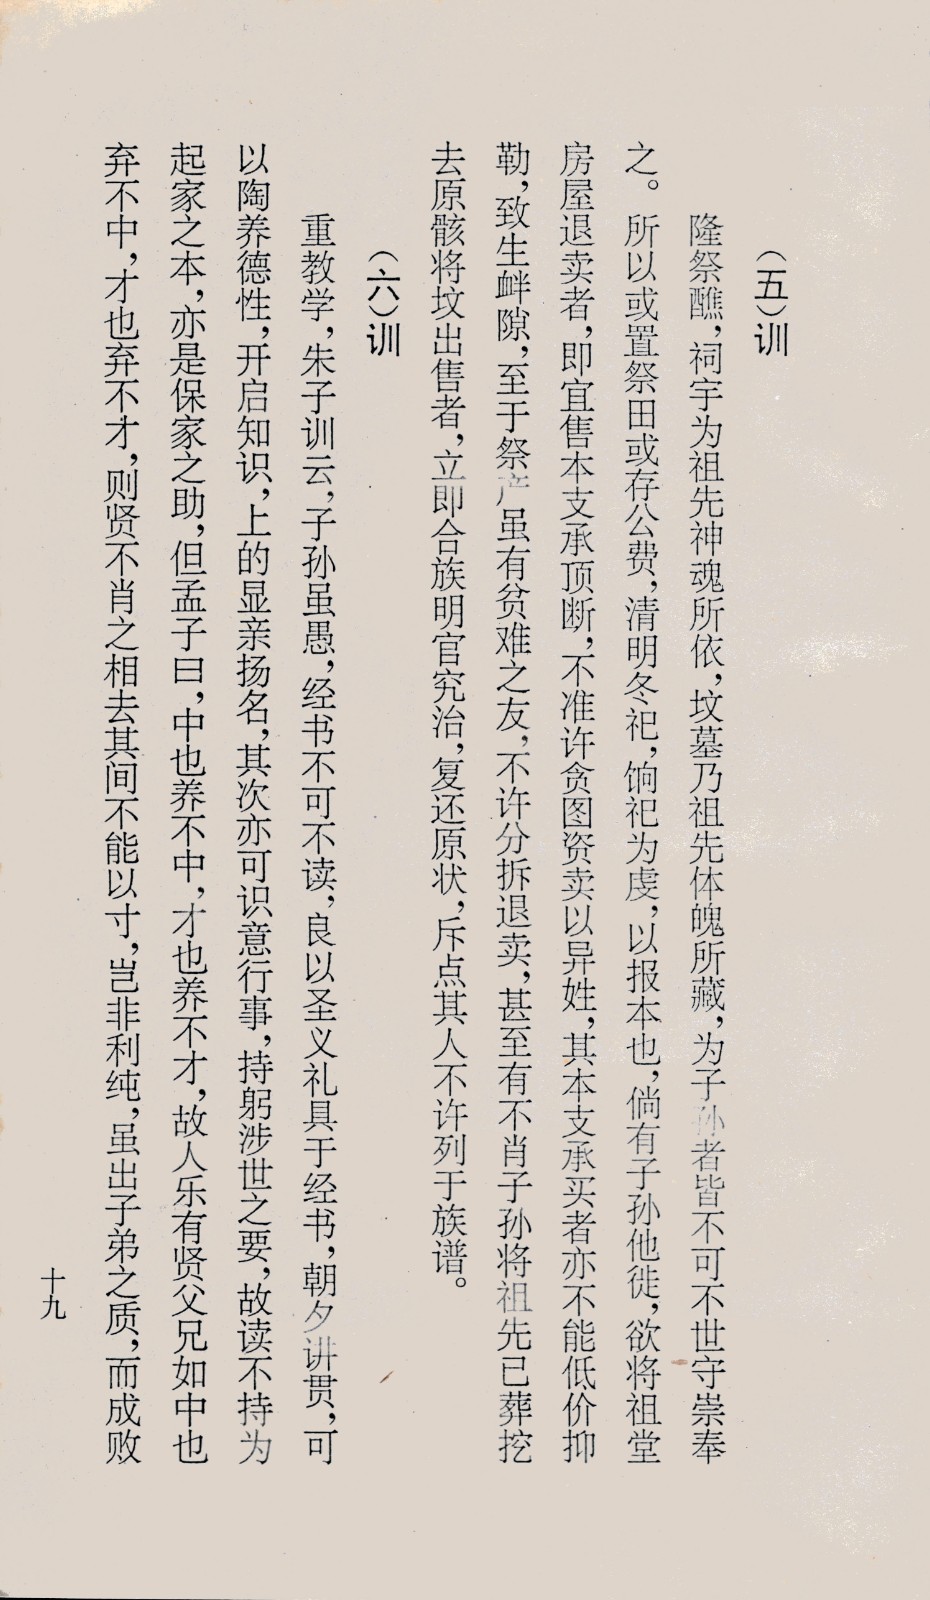 （五）训
隆祭醮，祠宇为祖先神魂所依，坟墓乃祖先体魄所藏，为子孙者皆不可不世守崇奉
之。所以或置祭田或存公费，清明冬祀，饷祀为虔，以报本也，倘有子孙他徙，欲将祖堂
房屋退卖者，即宜售本支承顶断，不准许贪图资卖以异姓，其本支承买者亦不能低价抑
勒，致生衅隙，至于祭产虽有贫难之友，不许分拆退卖，甚至有不肖子孙将祖先已葬挖
去原骸将坟出售者，立即合族明官究治，复还原状，斥点其人不许列于族谱。
（六）训
重教学，朱子训云，子孙虽愚，经书不可不读，良以圣义礼具于经书，朝夕讲贯，可
以陶养德性，开启知识，上的显亲扬名，其次亦可识意行事，持躬涉世之要，故读不持为
起家之本，亦是保家之助，但孟子曰，中也养不中，才也养不才，故人乐有贤父兄如中也
弃不中，才也弃不才，则贤不肖之相去其间不能以寸，岂非利纯，虽出子弟之质，而成败
十九